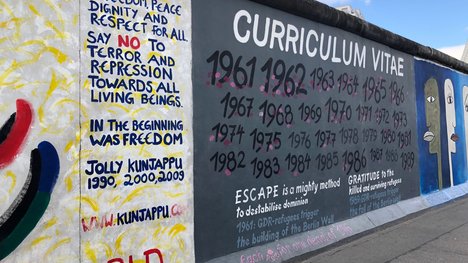 FREEDOM, PEACE
DIGNITY AND
RESPECT FOR ALL.
SAY NO TO
TERROR AND
REPRESSION
TOWARDS ALL
LIVING BEINGS.
IN THE BEGINNING
WAS FREEDOM
JOLLY KUNJAPPU
1990, 2000, 2009
www.KUNJAPPU.CO
CURRICULUM VITAE
1961 1962 1963 1964 1965 1966
1967 1968 1969 1970 1971 1972 1973
1974 1975 1976 1977 1978 1979 1980 1981
1982 1983 1984 1985 1986 1987 1988 1989
ESCAPE is a mighty method
to destabilise dominion
1961: GDR-refugees trigger
the building of the Berlin Wall
GRATITUDE to the
killed and surviving refugees
1989: GDR-refugees trigger
the fall of the Berlin Wall